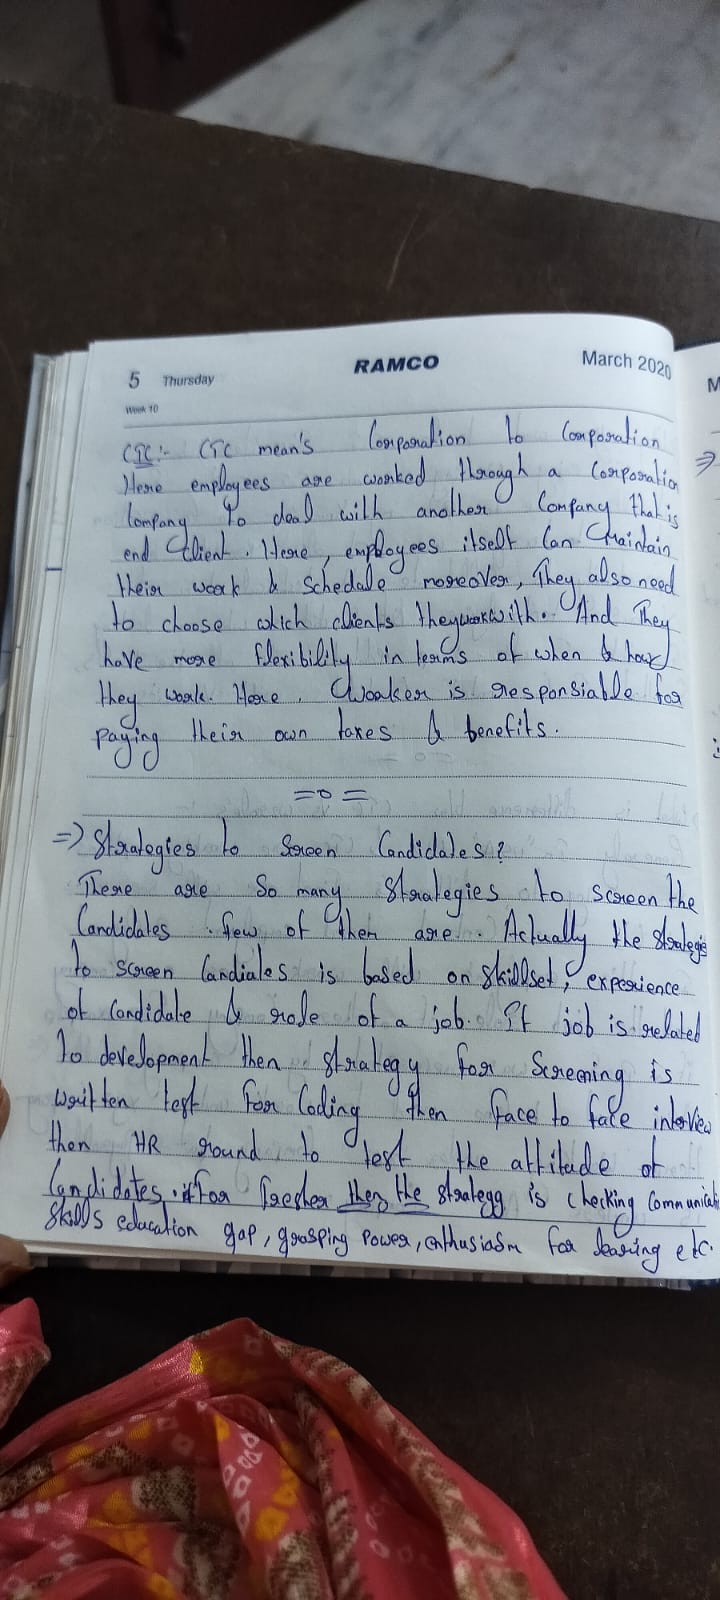 5 Thursday RAMCO March 2020
Week 10
CTC:- CTC mean's Corporation to Corporation
Here employees are worked through a Corporation
Company to deal with another Company that is
end Client. Here, employees itself Can Maintain
their work & schedale moreover, They also need
to choose which clients they work with. And They
have more flexibility in terms of when & how
they work. Here, Woaker is responsiable for
paying their own taxes & benefits.
=o=
=> Strategies to Screen Candidates?
There are So many Strategies to screen the
Candidates. few of them are. Actually the strategie
to screen Candiates is based on skillset, experience
of candidate & role of a job. If job is related
To development then strategy for Screening is
written test for Coding then face to face interview
then HR round to test the attitude of
Candidates. if For fresher then the strategy is checking Communicati
Skills education gap, grasping power, enthusiasm for learing etc.